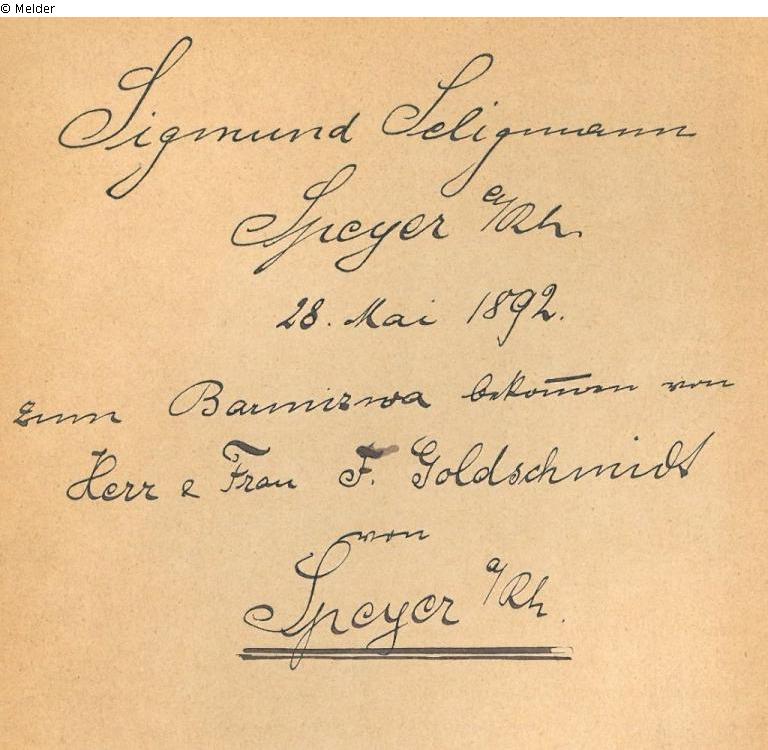 © Melder
Sigmund Seligmann
Speyer a/Rh.
28. Mai 1892.
zum Barmizwa bekom̄en von
Herr & Frau F. Goldschmidt
von
Speyer a/Rh.